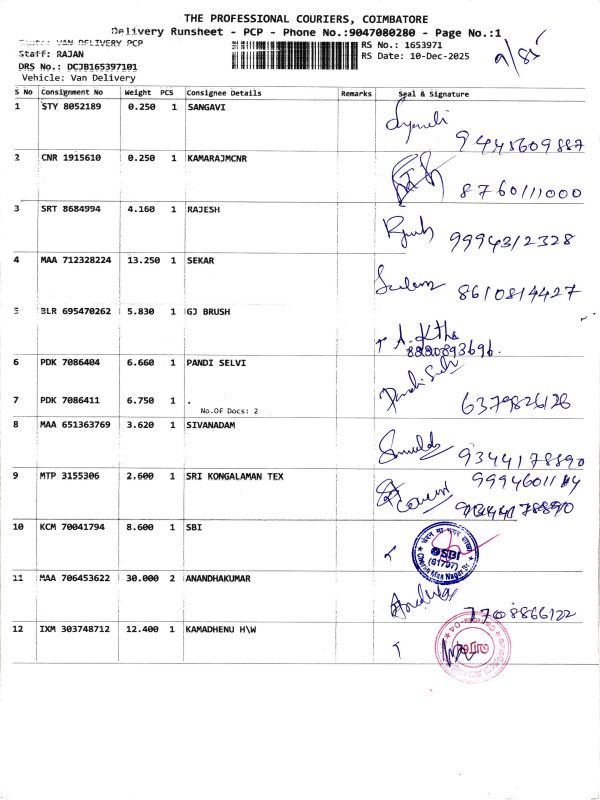 THE PROFESSIONAL COURIERS, COIMBATORE
Delivery Runsheet - PCP - Phone No.:9047080280 - Page No.:1
VAN DELIVERY PCP
Staff: RAJAN
DRS No.: DCJB165397101
Vehicle: Van Delivery
RS No.: 1653971
RS Date: 10-Dec-2025
9/85
S No Consignment No Weight PCS Consignee Details Remarks Seal & Signature
1 STY 8052189 0.250 1 SANGAVI
9445609887
2 CNR 1915610 0.250 1 KAMARAJMCNR
8760111000
3 SRT 8684994 4.160 1 RAJESH
9994312328
4 MAA 712328224 13.250 1 SEKAR
8610814427
5 BLR 695470262 5.830 1 GJ BRUSH
6 PDK 7086404 6.660 1 PANDI SELVI
7 PDK 7086411 6.750 1 .
No.Of Docs: 2
6379826126
8 MAA 651363769 3.620 1 SIVANADAM
9344178890
9 MTP 3155306 2.600 1 SRI KONGALAMAN TEX
10 KCM 70041794 8.600 1 SBI
SBI
(61797)
Cheran Maa Nagar Br.
11 MAA 706453622 30.000 2 ANANDHAKUMAR
7708866122
12 IXM 303748712 12.400 1 KAMADHENU H\W